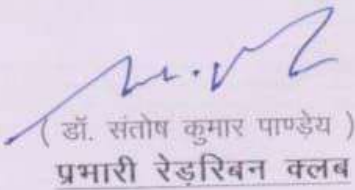 ( डॉ. संतोष कुमार पाण्डेय )
प्रभारी रेड़रिबन क्लब